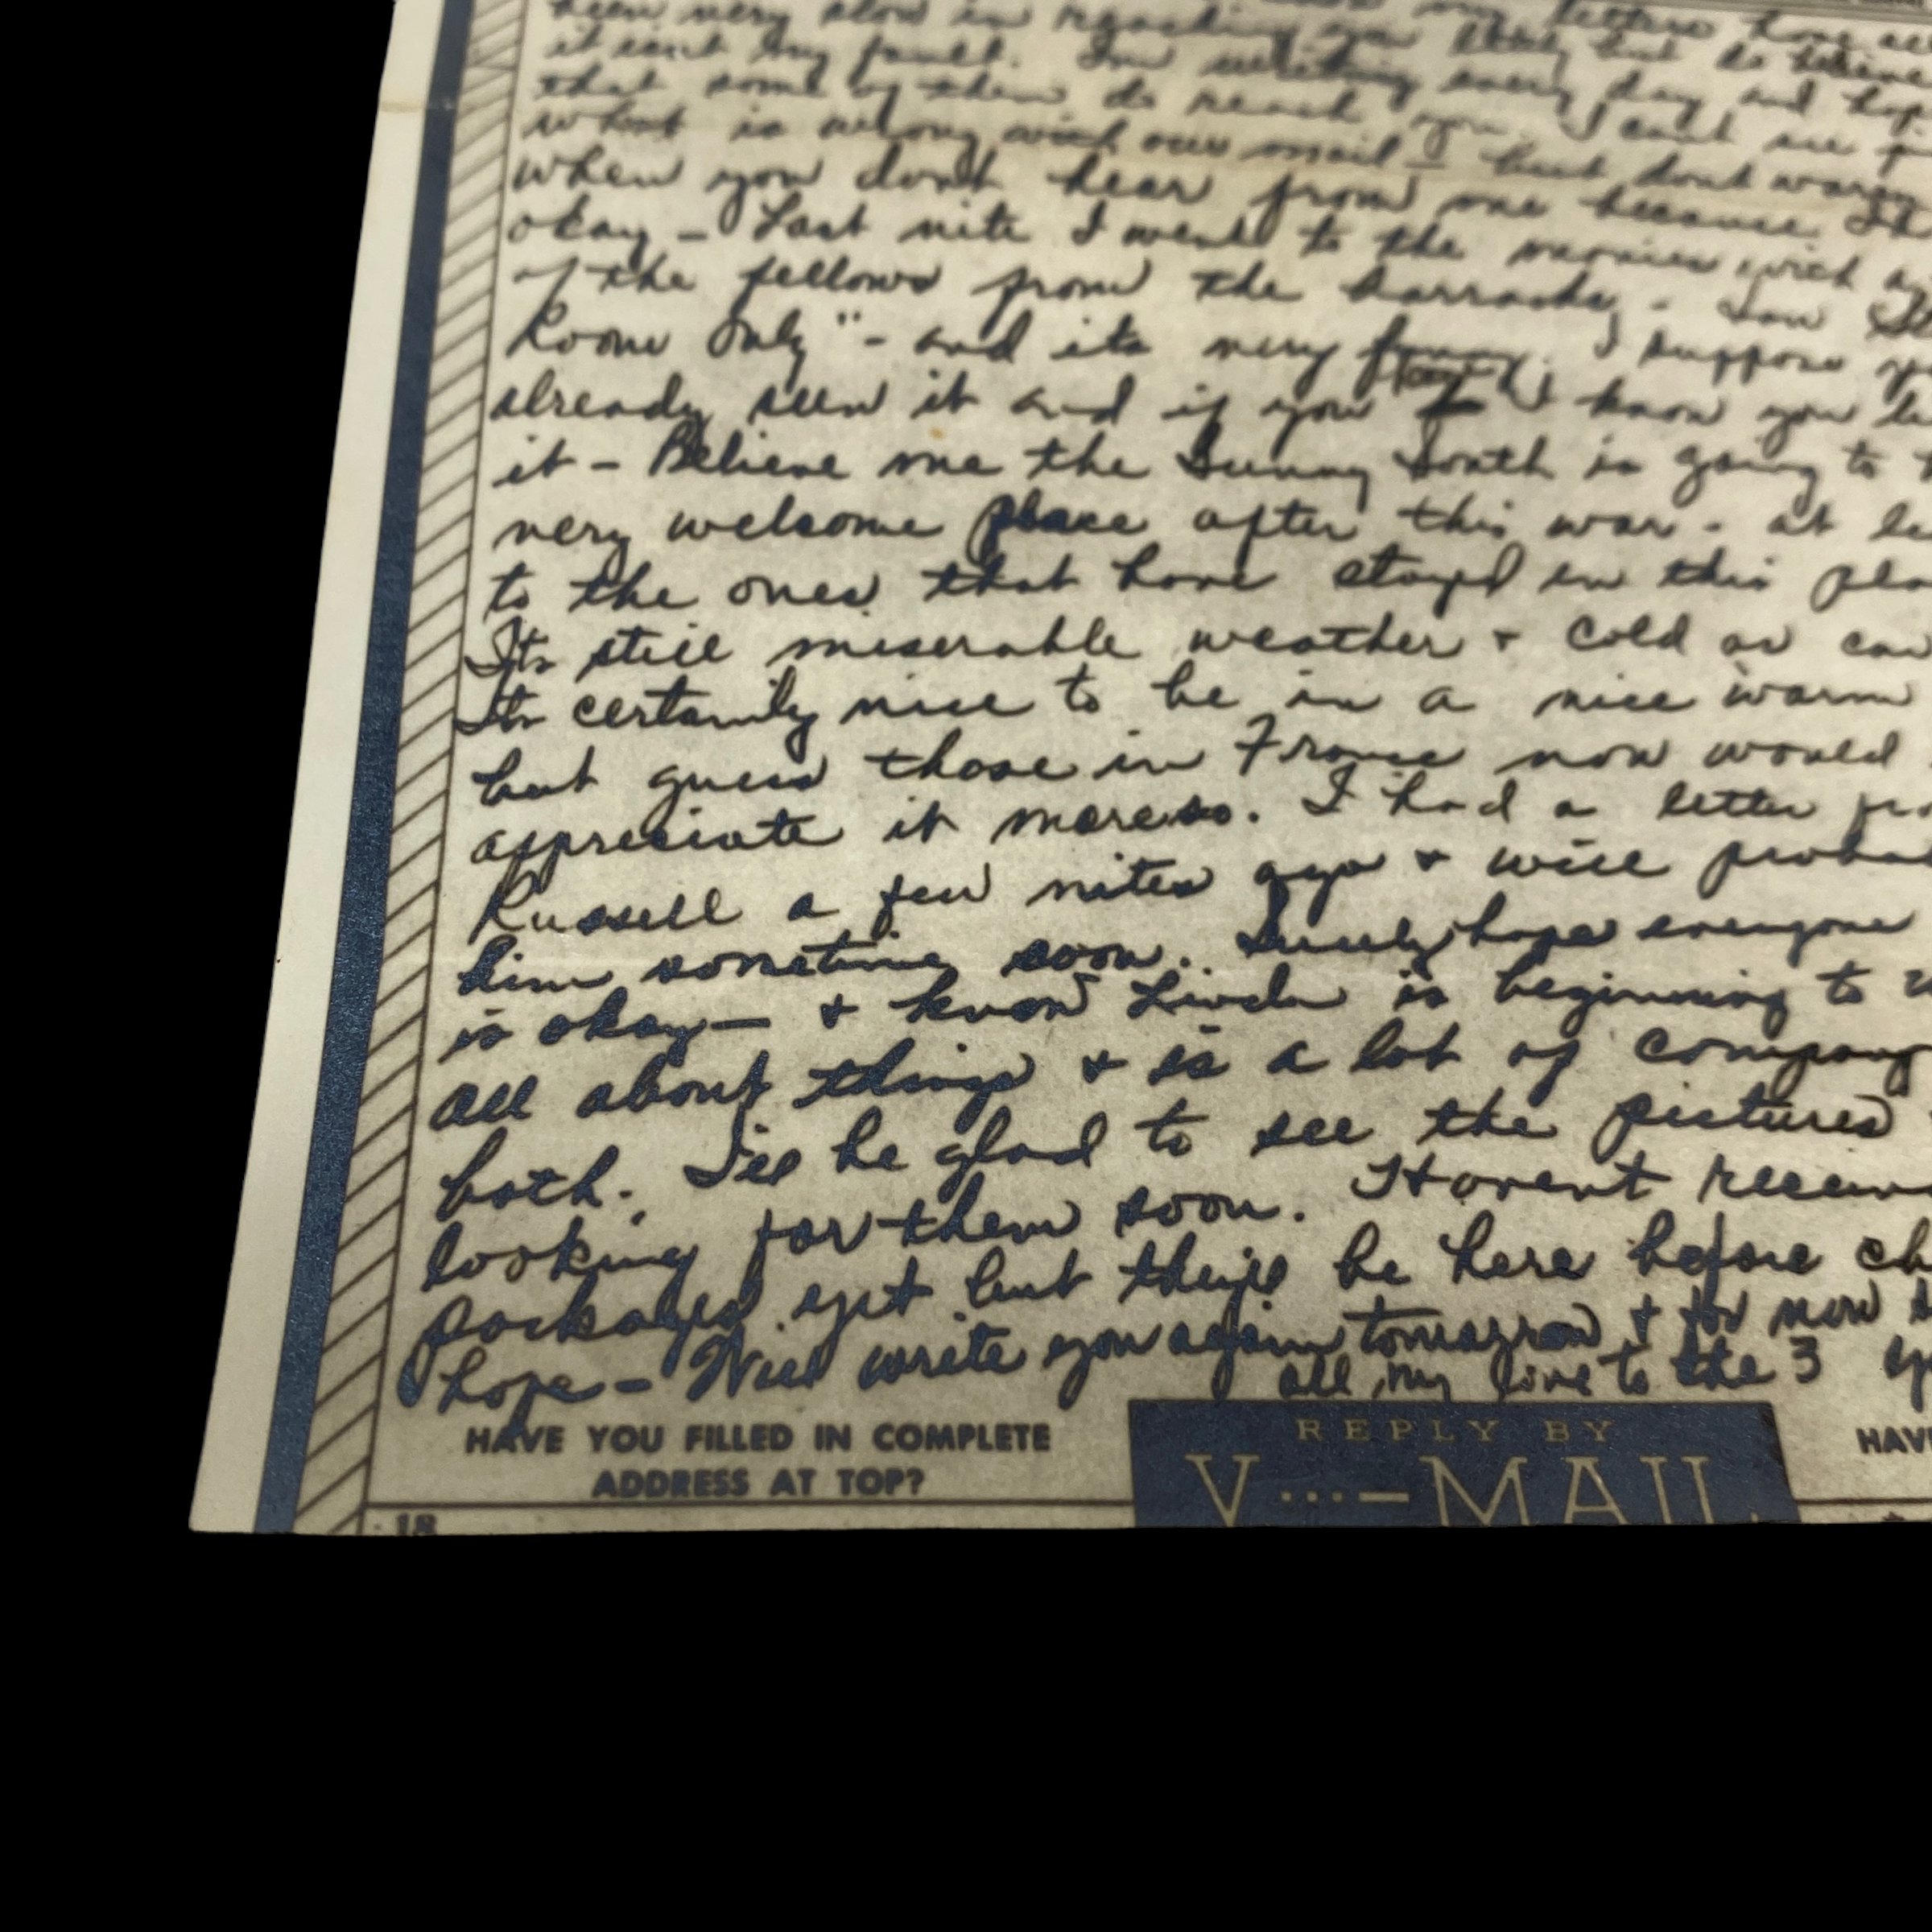 been very slow in reaching you lately but do believe
it isnt my fault. Im writing every day and hope
that some of them do reach you. I cant see
what is wrong with our mail but dont worry
when you dont hear from me because
okay – Last nite I went to the movies with
of the fellows from the barracks – Saw
Room Only" – and its very funny. I suppose
already seen it and if you know you
it – Believe me the Sunny South is going to
very welcome place after this war – at
to the ones that have stayed in this
Its still miserable weather + cold as can
Its certainly nice to be in a nice warm
but guess those in France now would
appreciate it moreso. I had a letter
Russell a few nites ago + will
him sometime soon. Surely hope everyone
is okay – + know Linda is beginning to
all about things + is a lot of company
both. I'll be glad to see the pictures
looking for them soon. Havent
packages yet but they'll be here before
hope – Will write you again tomorrow + for now
all my love to the 3
HAVE YOU FILLED IN COMPLETE
ADDRESS AT TOP?
REPLY BY
V···—MAIL